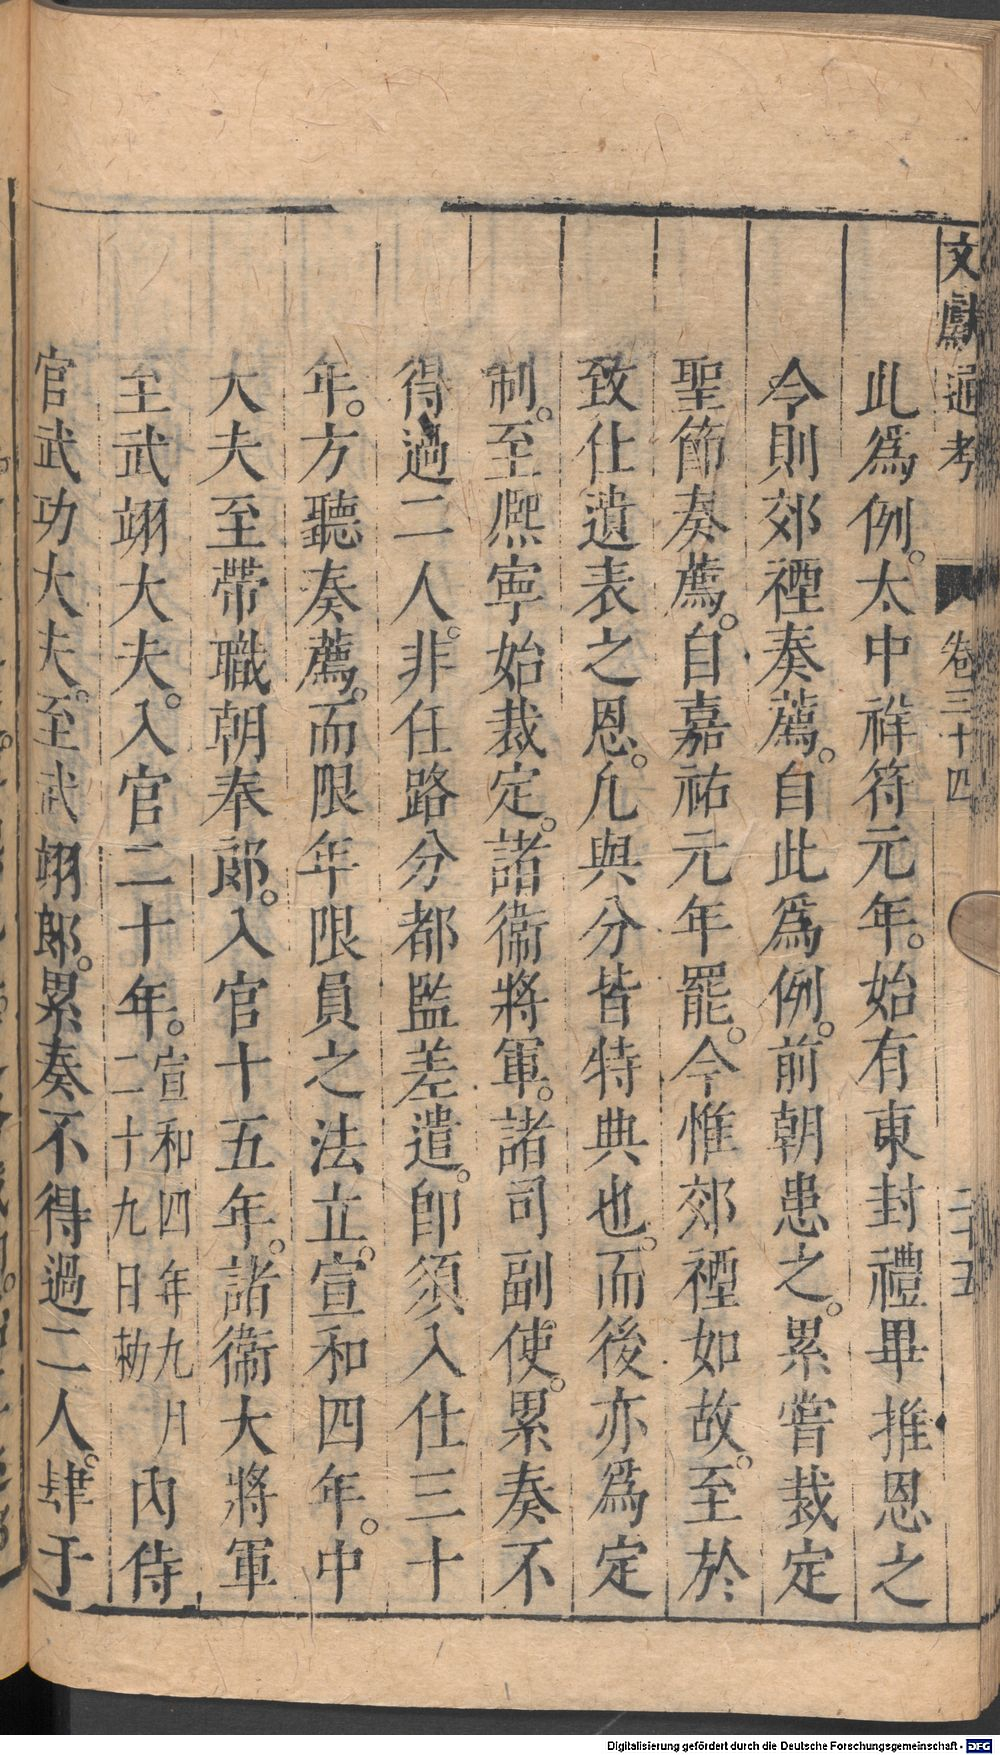 文獻通考 卷三十四 二十五
此爲例。太中祥符元年。始有東封禮畢推恩之
今則郊禋奏薦。自此爲例。前朝患之。累嘗裁定
聖節奏薦。自嘉祐元年罷。今惟郊禋如故。至於
致仕遺表之恩。凡與分皆特典也。而後亦爲定
制。至熈寜始裁定。諸衞將軍。諸司副使。累奏不
得過二人。非任路分都監差遣。即須入仕三十
年。方聽奏薦。而限年限員之法立。宣和四年。中
大夫至帶職朝奉郎。入官十五年。諸衞大將軍
至武翊大夫。入官二十年。宣和四年九月二十九日勑 內侍
官武功大夫。至武翊郎。累奏不得過二人。肆于
Digitalisierung gefördert durch die Deutsche Forschungsgemeinschaft - DFG